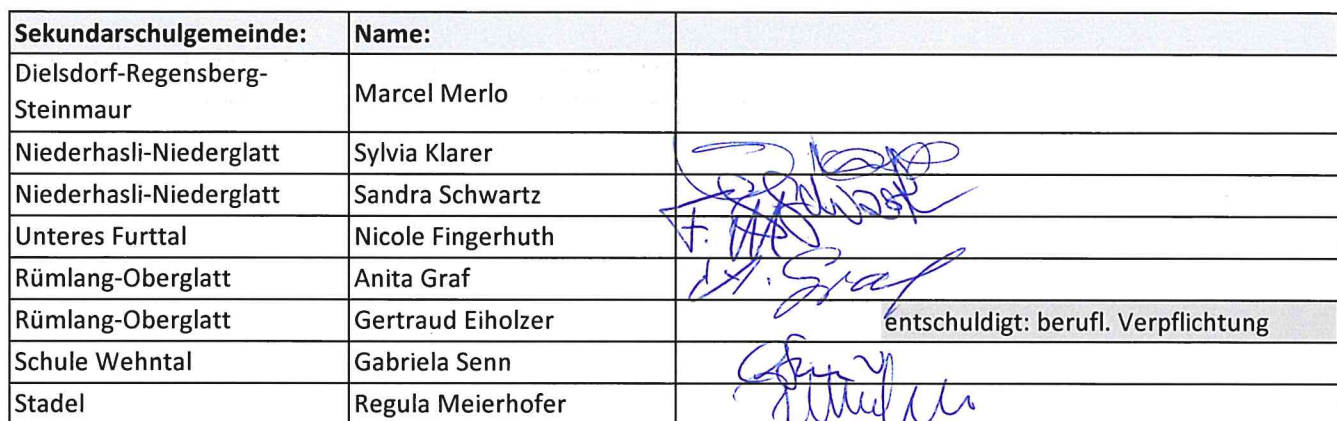 Sekundarschulgemeinde: Name:
Dielsdorf-Regensberg-
Steinmaur
Marcel Merlo
Niederhasli-Niederglatt Sylvia Klarer
Niederhasli-Niederglatt Sandra Schwartz
Unteres Furttal Nicole Fingerhuth
Rümlang-Oberglatt Anita Graf A. Graf
Rümlang-Oberglatt Gertraud Eiholzer entschuldigt: berufl. Verpflichtung
Schule Wehntal Gabriela Senn
Stadel Regula Meierhofer